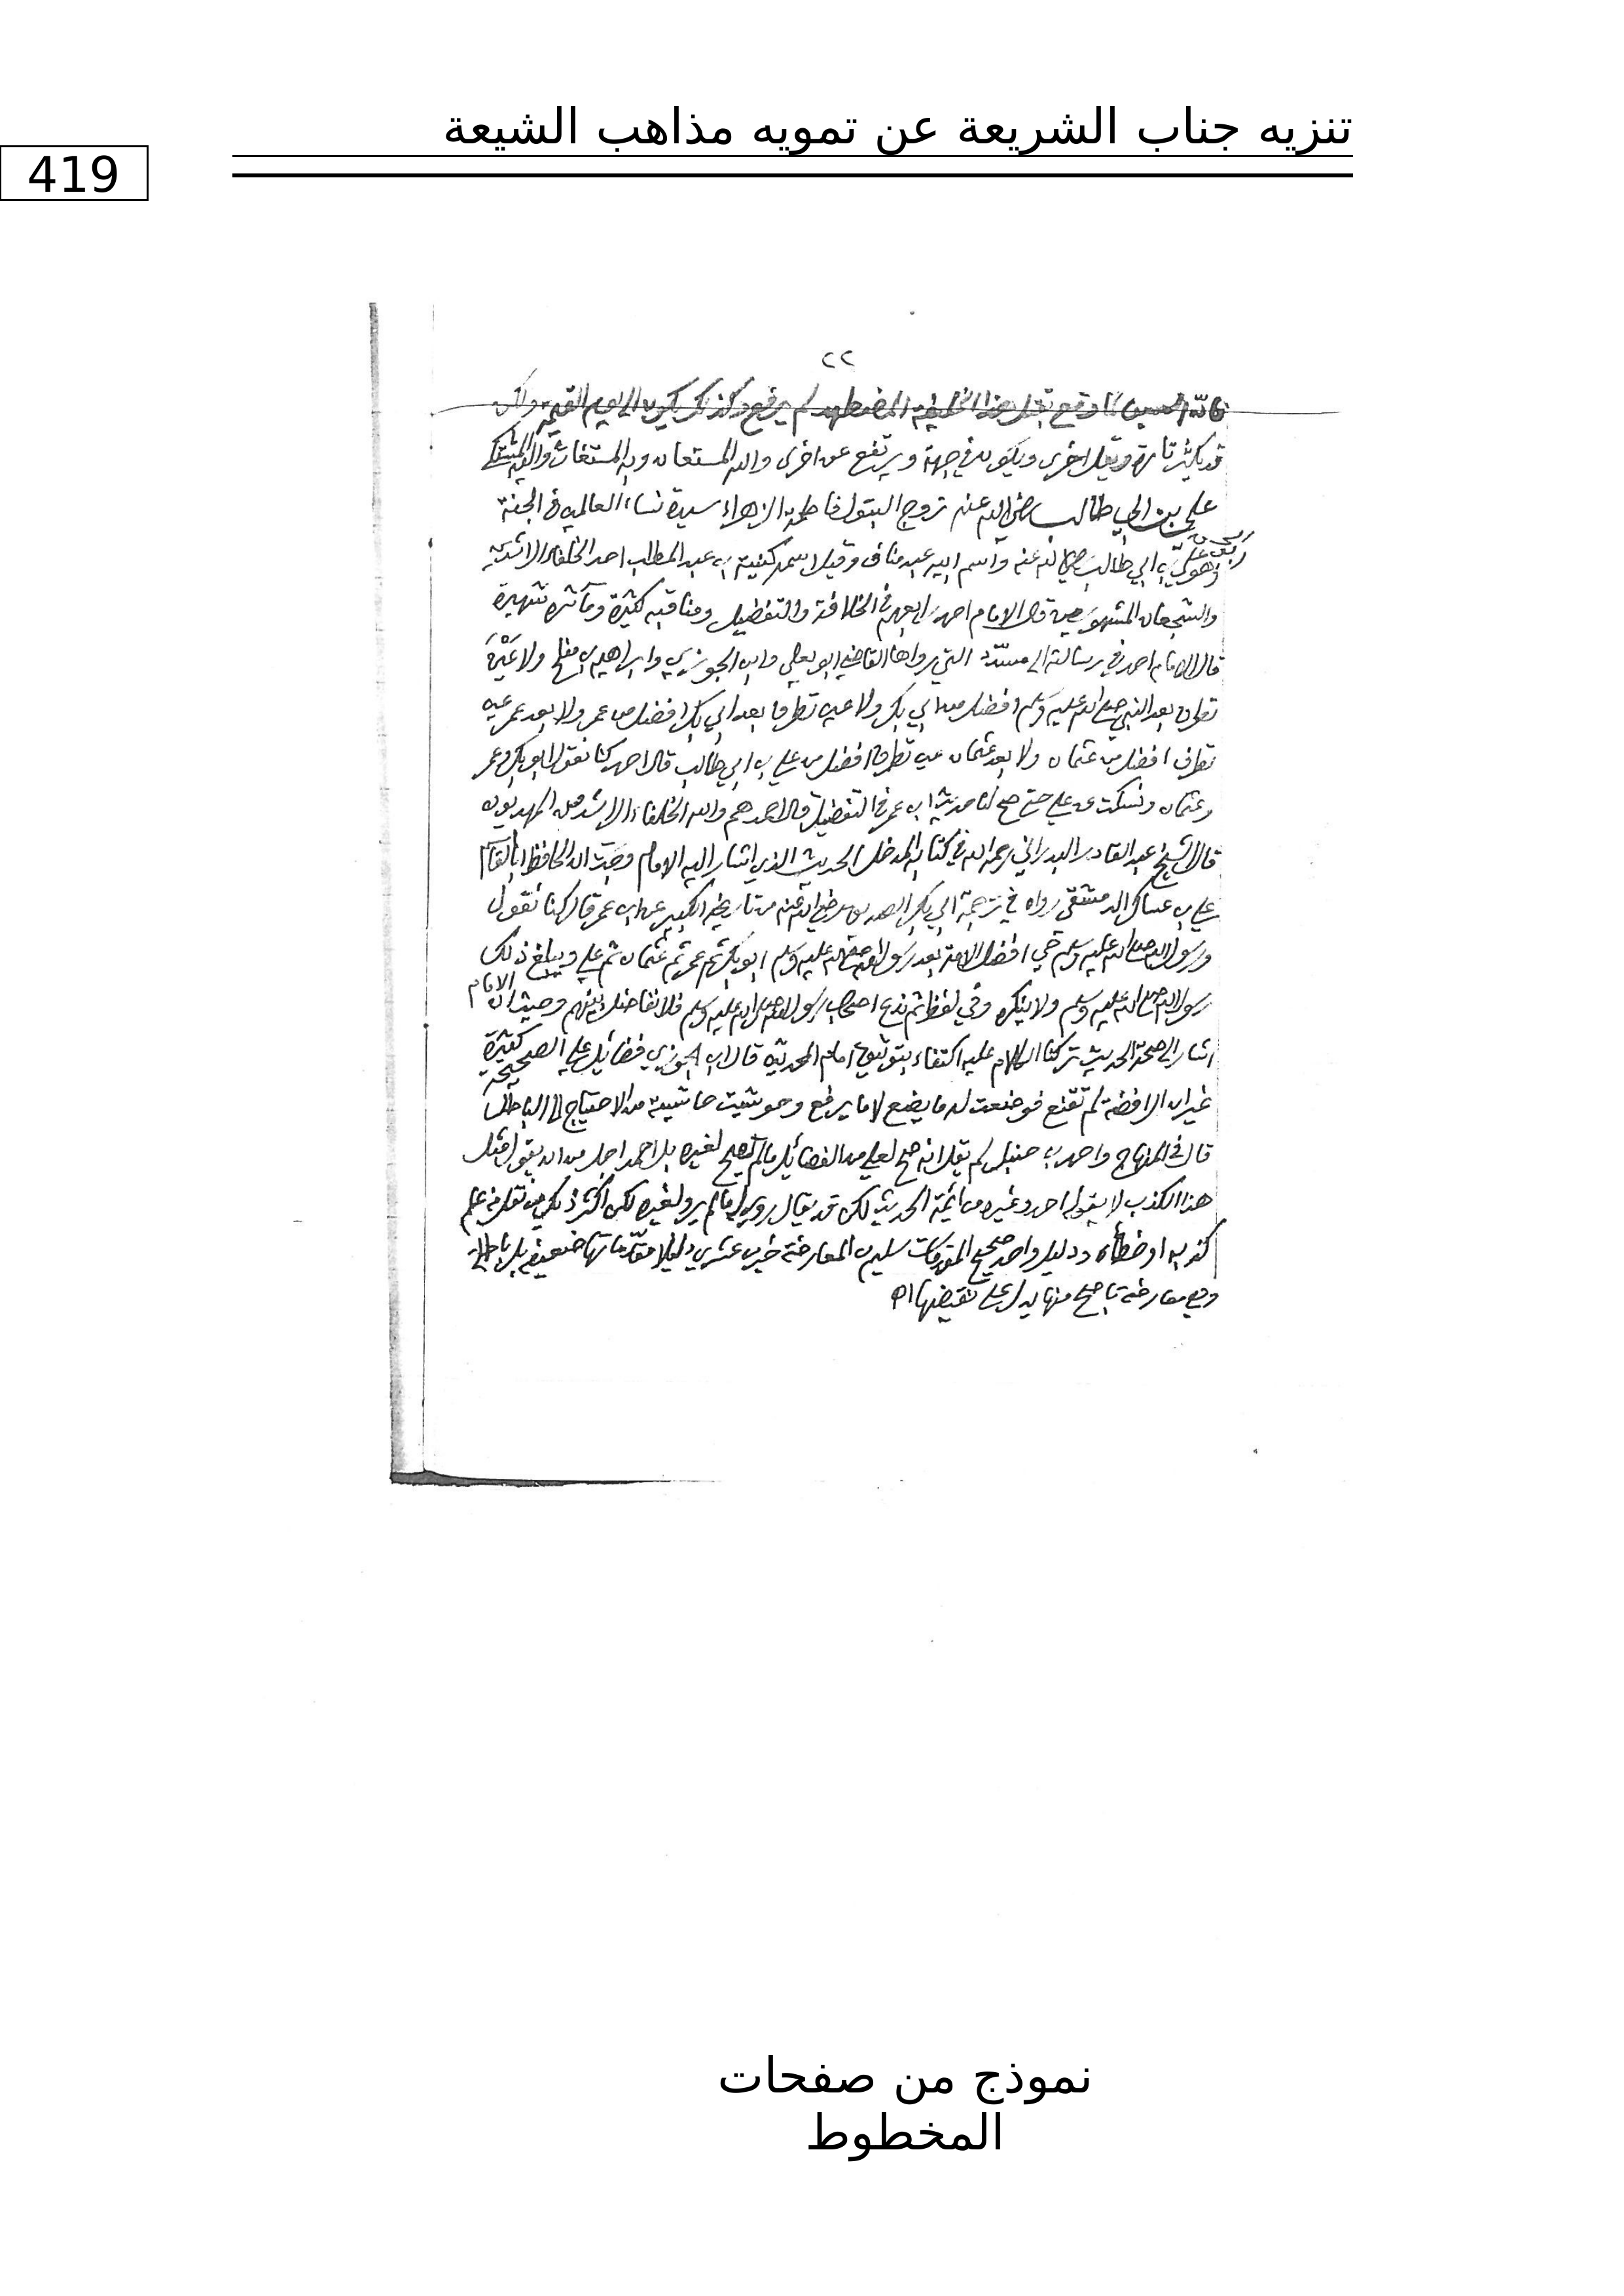 تنزيه جناب الشريعة عن تمويه مذاهب الشيعة
419
٢٢
قد يكثر تارة ويقل اخرى ويكون في جهة ويرتفع عن اخرى والله المستعان وبه المستغاث واليه المشتكى
علي بن ابي طالب رضي الله عنه زوج البتول فاطمة الزهراء سيدة نساء العالمين في الجنة
وهو علي بن ابي طالب رضي الله عنه واسم ابيه عبد مناف وقيل اسمه كنيته بن عبد المطلب احد الخلفاء الراشدين
والشجعان المشهورين قال الامام احمد رابعهم في الخلافة والتفضيل ومناقبه كثيرة ومآثره شهيرة
قال الامام احمد في رسالته الى مسدّد التي رواها القاضي ابو يعلى وابن الجوزي وابراهيم بن مفلح ولا عَيْنَ
تطرف بعد النبي صلى الله عليه وسلم افضل من ابي بكر ولا عين تطرف بعد ابي بكر افضل من عمر ولا بعد عمر عين
تطرف افضل من عثمان ولا بعد عثمان عين تطرف افضل من علي بن ابي طالب قال احمد كنا نقول ابو بكر وعمر
وعثمان ونسكت عن علي حتى صح لنا حديث ابن عمر في التفضيل قال احمد هم والله الخلفاء الراشدون المهديون
قال الشيخ عبد القادر البدراني رحمه الله في كتابه المدخل الحديث الذي اشار اليه الامام وجدت ان الحافظ ابا القاسم
علي بن عساكر الدمشقي رواه في ترجمة ابي بكر الصديق رضي الله عنه من تاريخه الكبير عن ابن عمر قال كنا نقول
ورسول الله صلى الله عليه وسلم حي افضل الامة بعد رسول الله صلى الله عليه وسلم ابو بكر ثم عمر ثم عثمان ثم علي ويبلغ ذلك
رسول الله صلى الله عليه وسلم ولا ينكره وفي لفظ ثم ندع اصحاب رسول الله صلى الله عليه وسلم فلا نفاضل بينهم وحيث ان الامام
اشار الى صحة الحديث تركنا الكلام عليه اكتفاء بتوثيق امام المحدثين قال ابن الجوزي فضائل علي الصحيحة كثيرة
غير ان الرافضة لم تقنع فوضعت له ما يضع لا ما يرفع وحوشيت حاشيته من الاحتياج الى الباطل
قال في المنهاج واحمد بن حنبل لم يقل انه صح لعلي من الفضائل ما لم يصح لغيره بل احمد اجل من ان يقول مثل
هذا الكذب لا يقوله احمد وغيره من ائمة الحديث لكن قد يقال روي له ما لم يرو لغيره لكن اكثر ذلك من نقل من علم
كذبه او خطأه ودليل واحد صحيح المقدمات سليم عن المعارضة خير من عشرين دليلا مقدّماتها ضعيفة بل باطلة
وهي معارضة باصح منها يدل على نقيضها اه
نموذج من صفحات
المخطوط